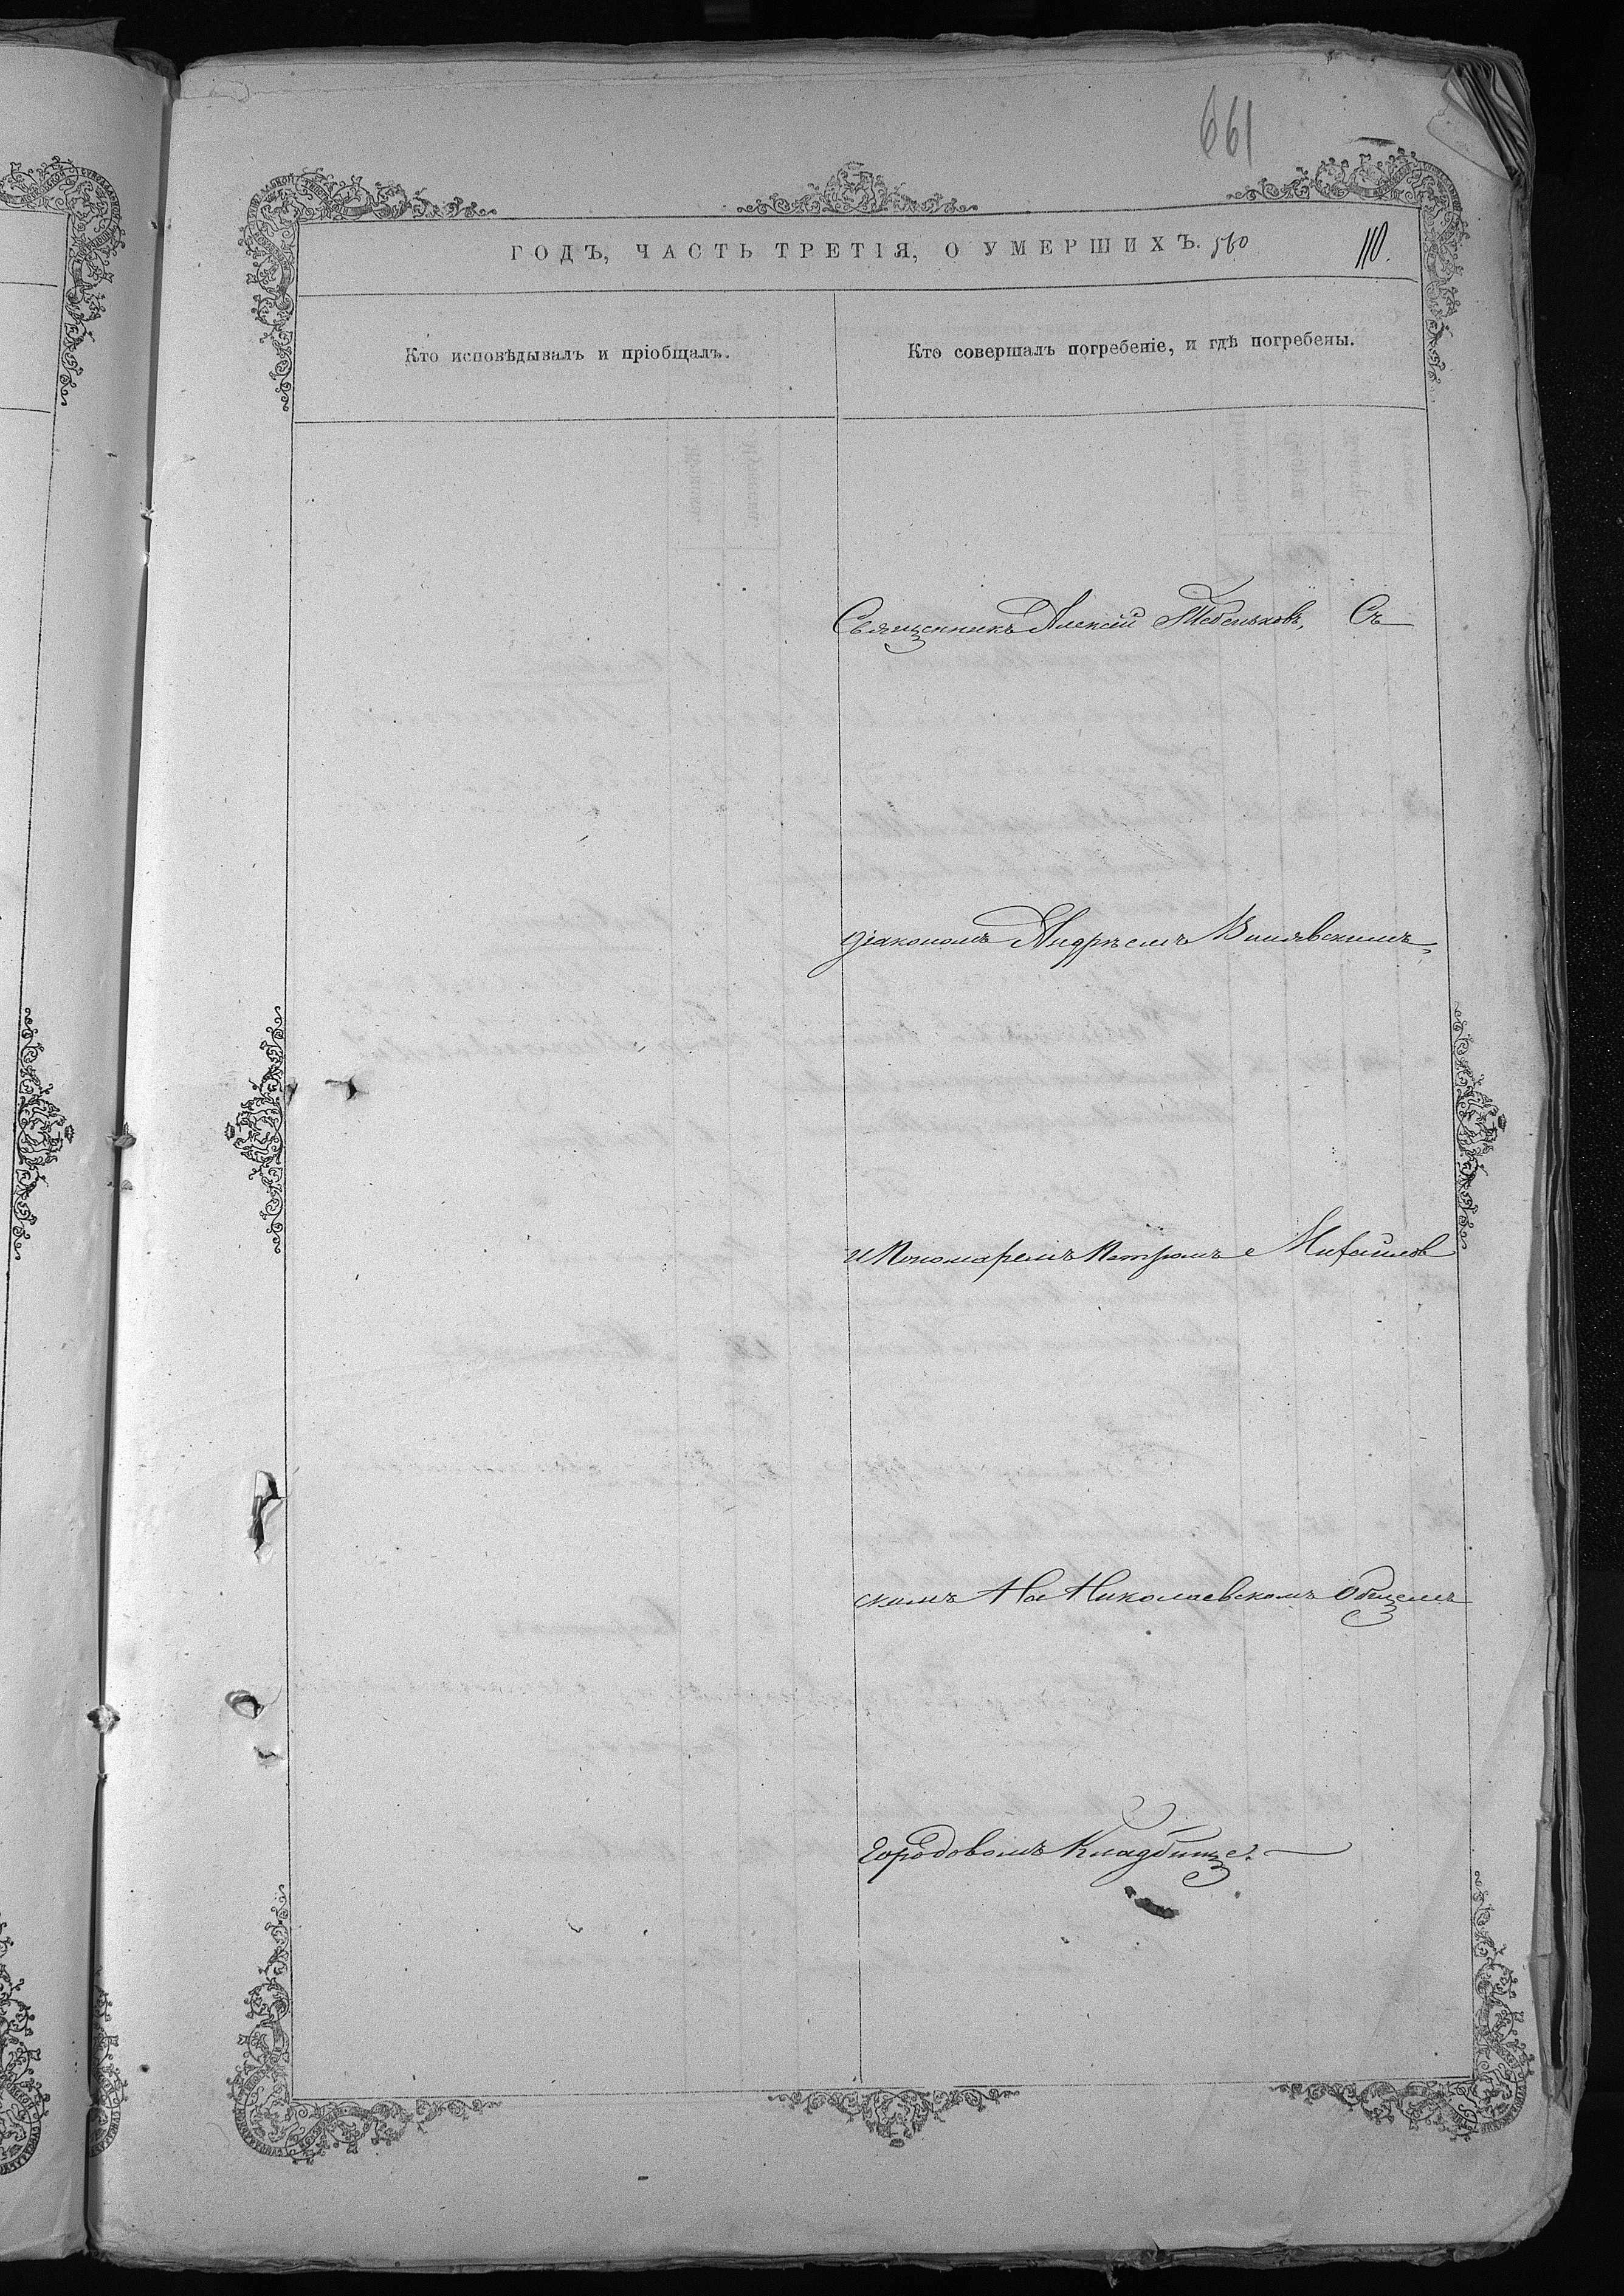 661
ГОДЪ, ЧАСТЬ ТРЕТІЯ, О УМЕРШИХЪ. 560 110.
Кто исповѣдывалъ и пріобщалъ.
Кто совершалъ погребеніе, и гдѣ погребены.
Священникъ Алексій Тебеньковъ, Съ
діакономъ Андреемъ
и Пономаремъ Петромъ Михайлов
скимъ На Николаевскомъ Общемъ
городовомъ Кладбище.